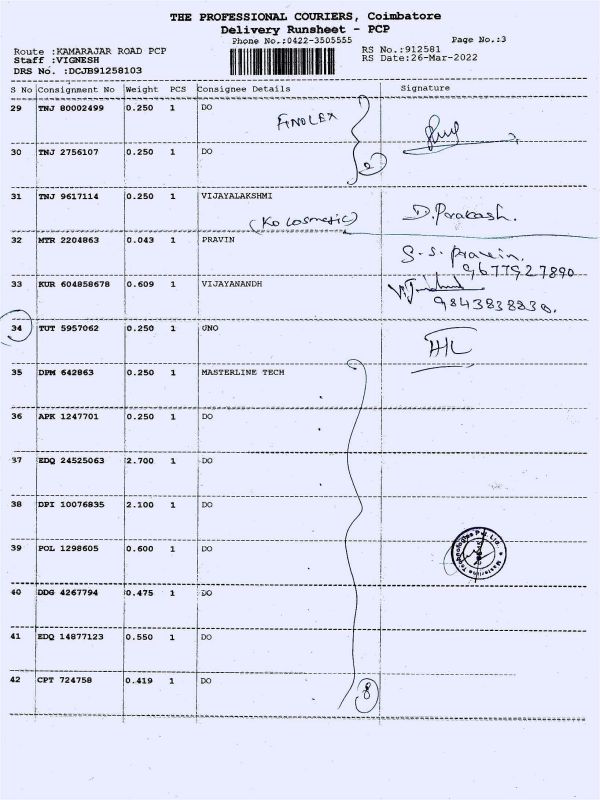 THE PROFESSIONAL COURIERS, Coimbatore
Delivery Runsheet - PCP
Phone No.:0422-3505555 Page No.:3
Route :KAMARAJAR ROAD PCP RS No.:912581
Staff :VIGNESH RS Date:26-Mar-2022
DRS No. :DCJB91258103
S No Consignment No Weight PCS Consignee Details Signature
29 TNJ 80002499 0.250 1 DO FINOLEX
30 TNJ 2756107 0.250 1 DO 2
31 TNJ 9617114 0.250 1 VIJAYALAKSHMI D. Prakash.
(Ko Cosmetic)
32 MTR 2204863 0.043 1 PRAVIN S.S. Pravin.
9677927890
33 KUR 604858678 0.609 1 VIJAYANANDH
9843838830.
34 TUT 5957062 0.250 1 UNO
35 DPM 642863 0.250 1 MASTERLINE TECH
36 APK 1247701 0.250 1 DO
37 EDQ 24525063 2.700 1 DO
38 DPI 10076835 2.100 1 DO
39 POL 1298605 0.600 1 DO Masterline Technologies Pvt. Ltd.
40 DDG 4267794 0.475 1 DO
41 EDQ 14877123 0.550 1 DO
42 CPT 724758 0.419 1 DO 8